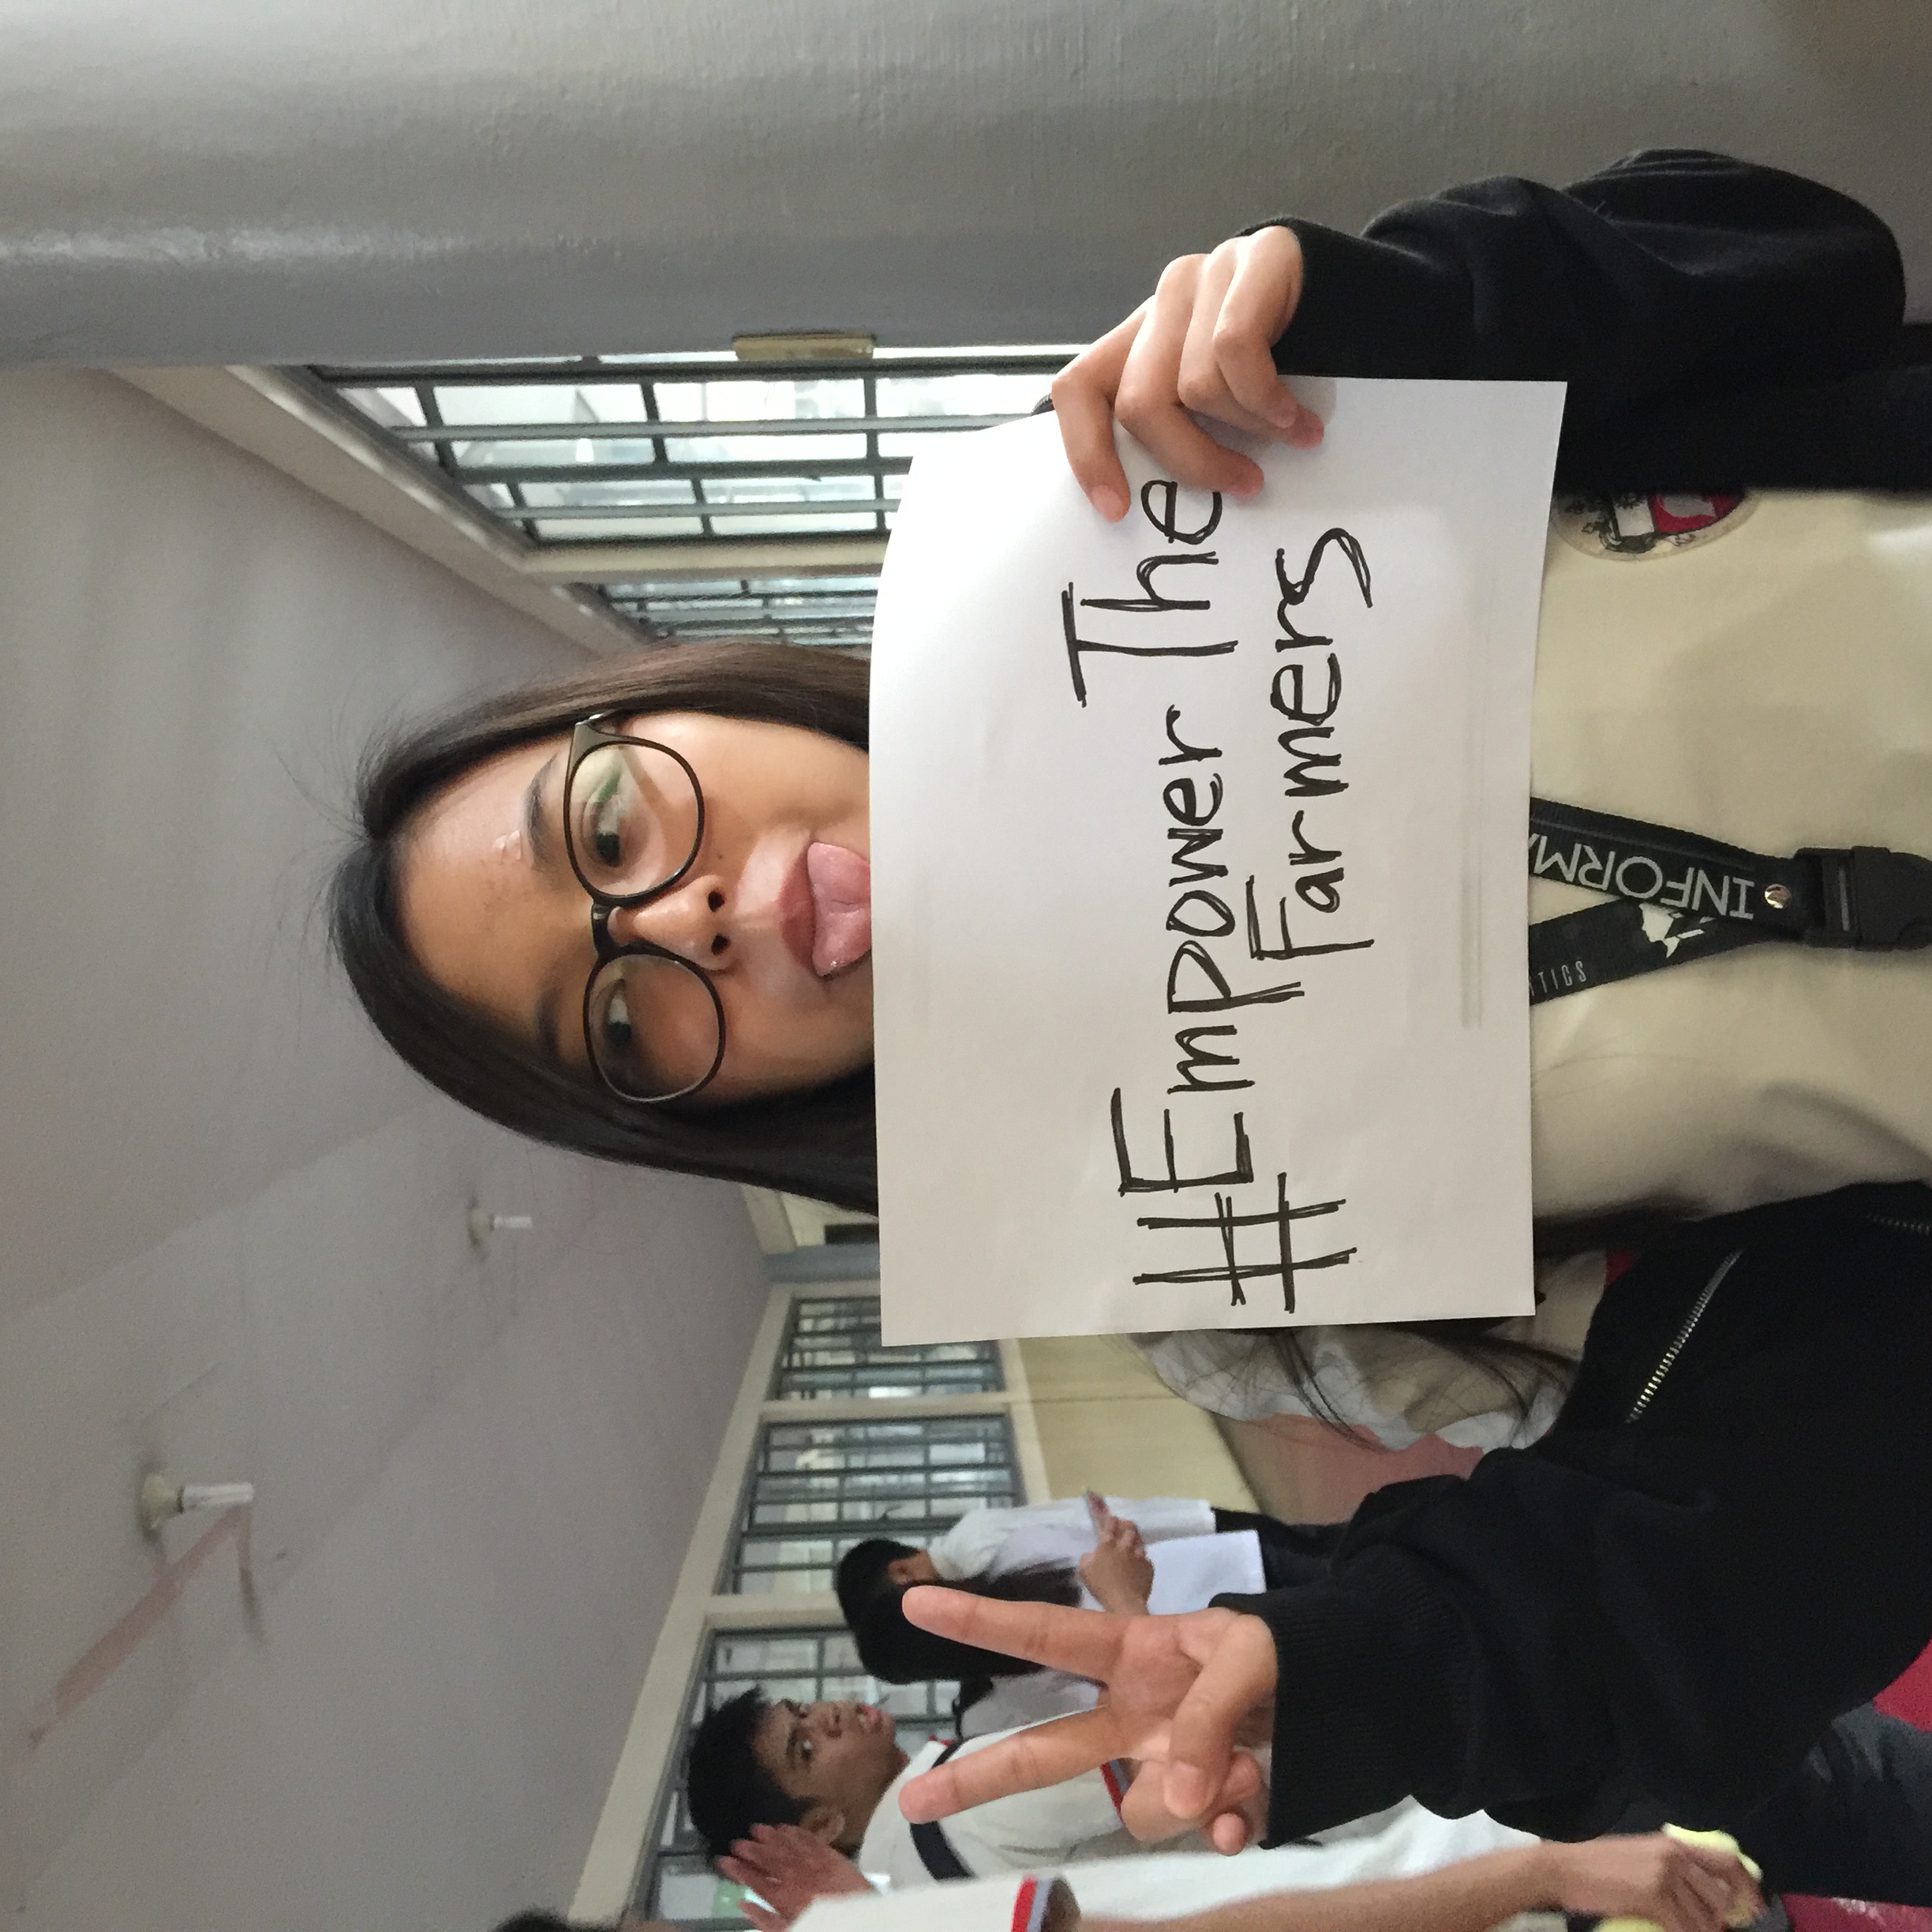 #Empower The
Farmers
INFORMA
TICS